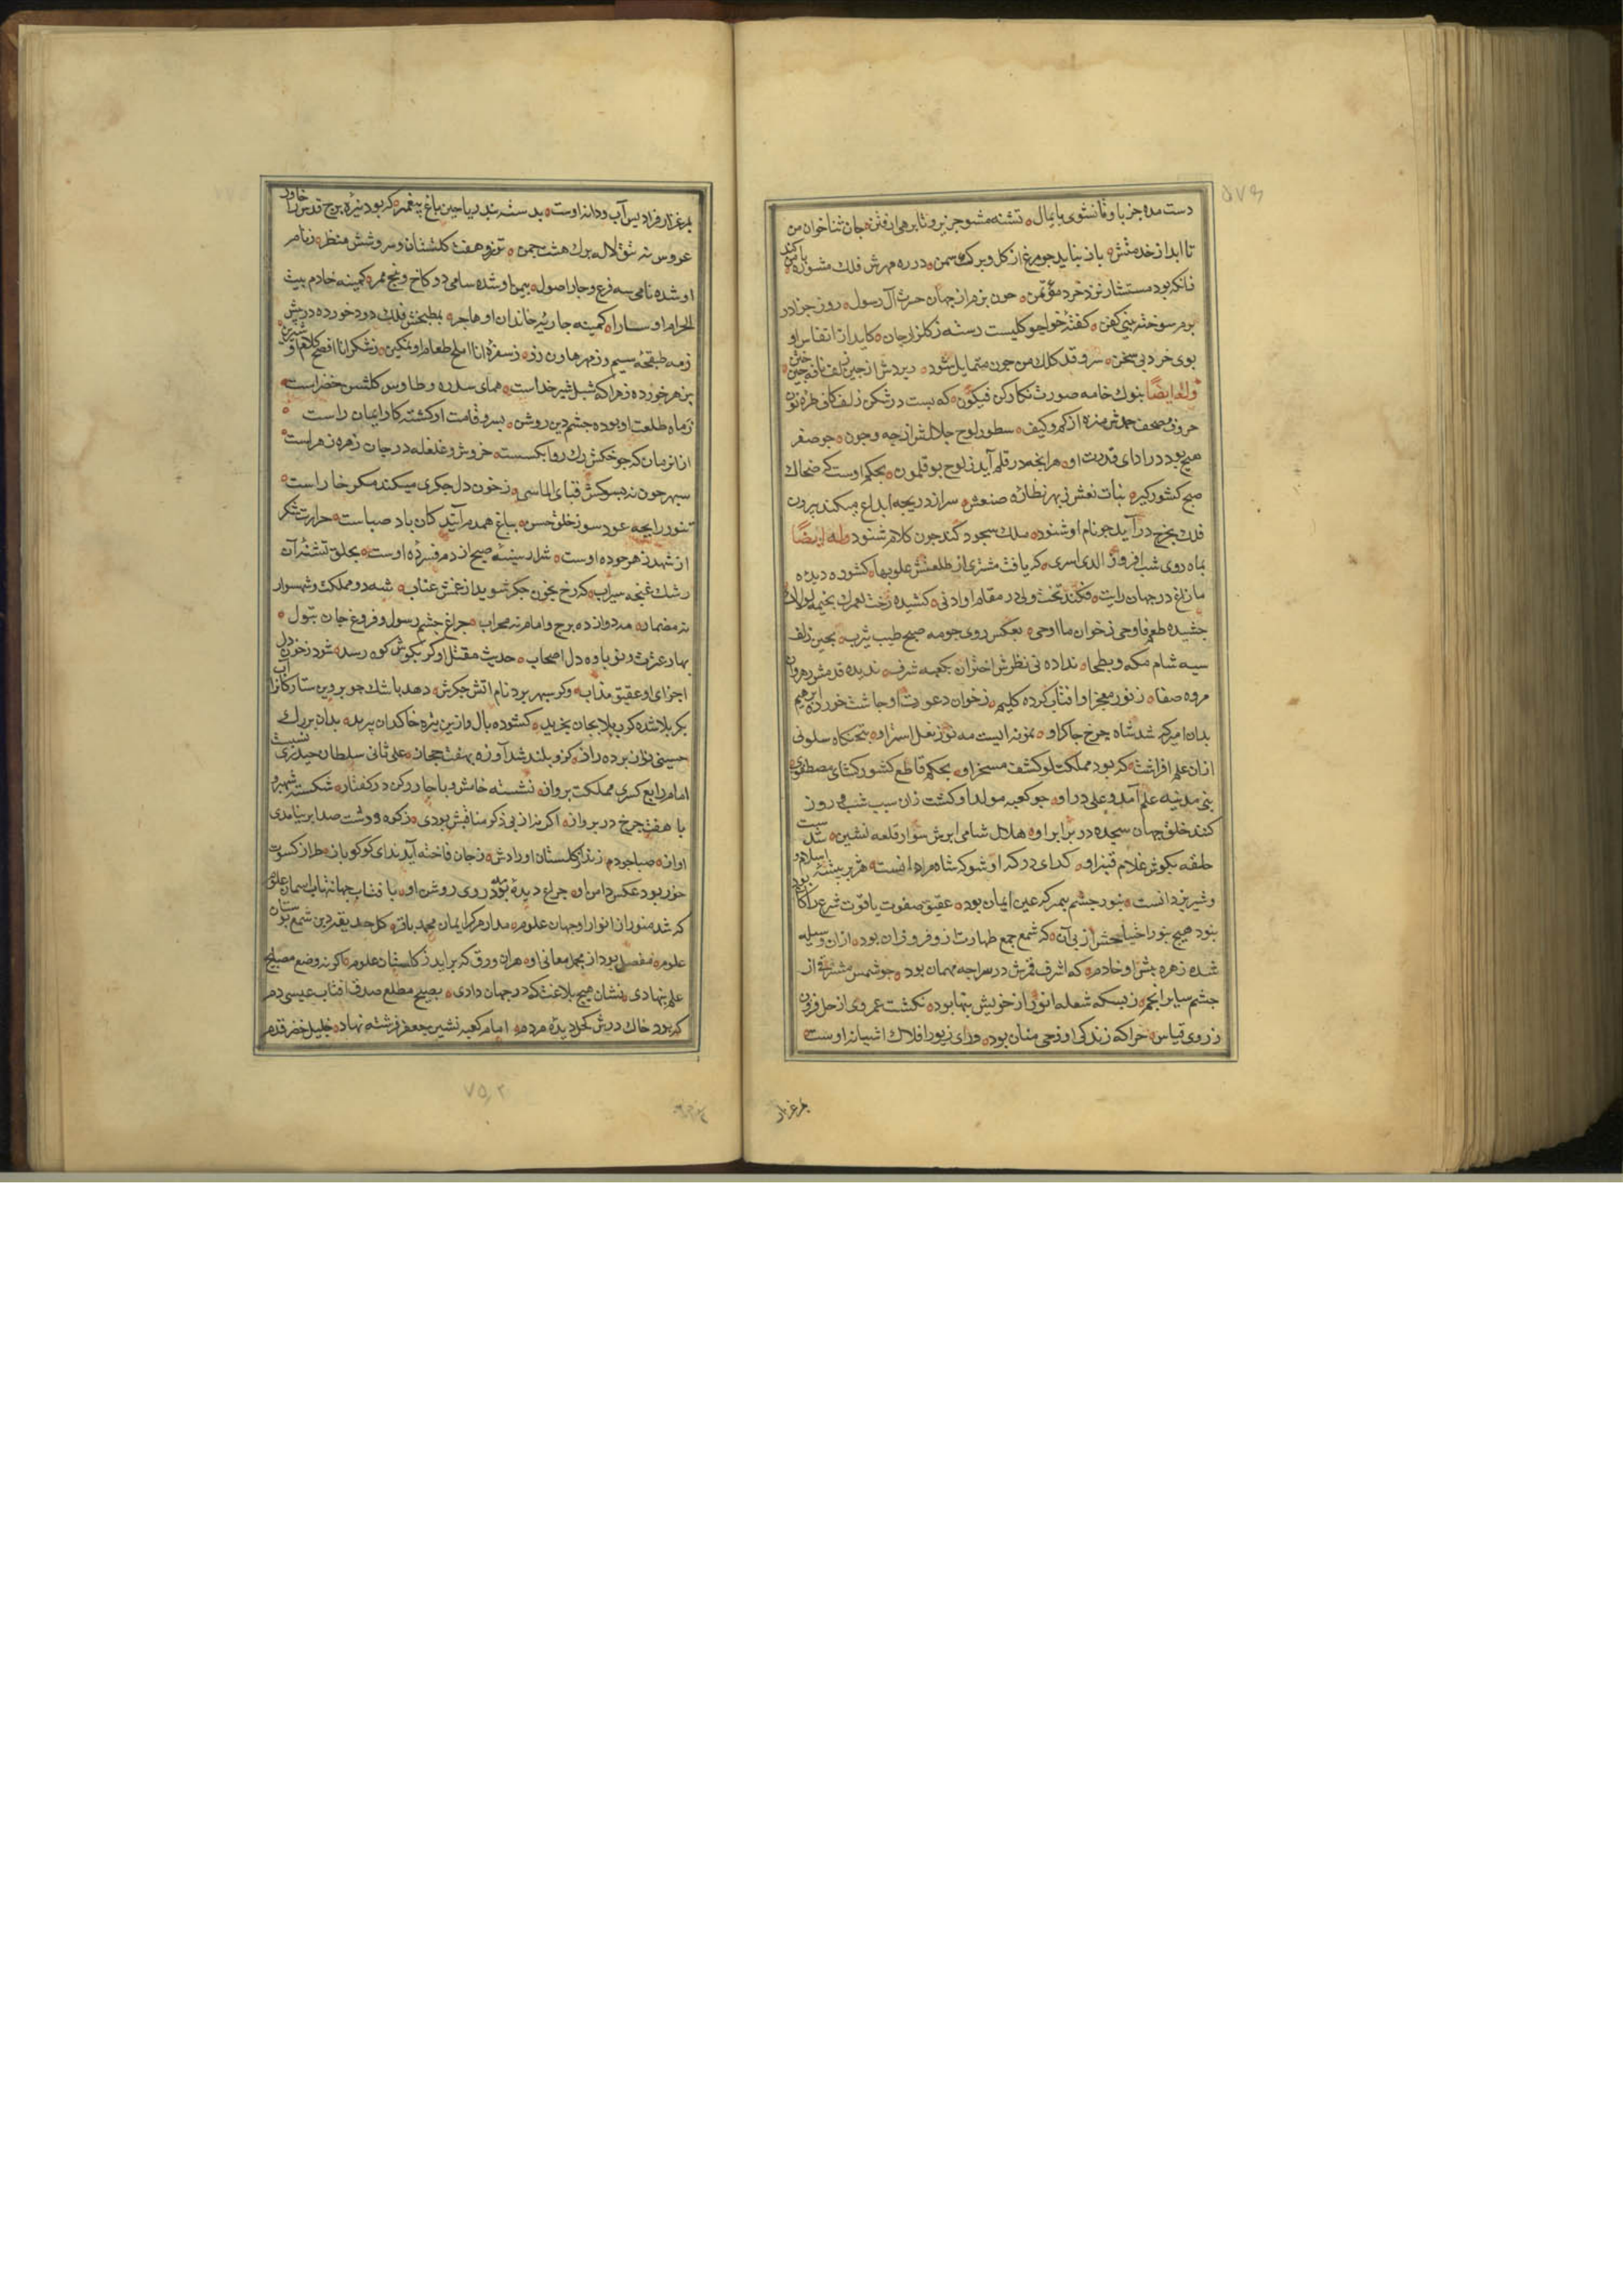 دست مده جز باو تا نشوی پایمال ه تشنه مشو جز برو تا برهی از فتن ه جان ثناخوان من
تا ابد از خدمتش ه باز نیاید جو مرغ از کل و برک سمن ه در ره مهرش فلک
زانکه بود مستشار نزد خرد مؤتمن ه جون بزم از جهان حرث آل رسول ه روز جزا در
برم سوخته بینی کفن ه کفتهٔ خواجو کلیست رسته ز کلزار جان ه کاید از انفاس او
بوی خرد بی سخن ه سرو قد کلک من جون متمایل شود ه از جین زلف نافه
وله ایضًا بنوک خامه صورت نکار کن فیکون ه که بست در شکن زلف کاف طرهٔ نون
حروف مصحف حمدش منزه از کم و کیف ه سطور لوح جلالش از جه و جون ه جو صفر
هیج بود در ادای قدرت او ه هر آنجه در قلم آید ز لوح بوقلمون ه بحکم اوست که ضحاک
صبح کشور کیر ه بنات نعش ز بهر نظاره صنعش ه سر از دریجه ابداع میکند بیرون
فلک بجرخ در آید جو نام او شنود ه ملک سجود کند جون کلام شنود وله ایضًا
بماه روی شب افروز الذی اسری ه که یافت مشتری از طلعتش علو بها ه کشوده دیده
ما زاغ در جهان رایت ه فکند تخت ولی در مقام او ادنی ه کشیده رخت لعمرک بخیمه لولاک
جشیده طعم فاوحی ز خوان ما اوحی ه بعکس روی جو مه صبح طیب یثرب ه بجین زلف
سیه شام مکه و بطحا ه نداده بی نظرش اختران بکعبه شرف ه ندیده قدمش رهروان
مروه صفا ه ز نور معجز او اقتباس کرده کلیم ه ز خوان دعوت او جاشت خورده ابرهیم
بدان امیر که شد شاه جرخ جاکر او ه نمونه ایست مه نو ز نعل استر او ه بتختکاه سلونی
ازان علم افراشت ه که بود مملکت لو کشف مسخر او ه بحکم قاطع کشورکشای مصطفوی
نبی مدینه علم آمد و علی در او ه جو کعبه مولد او کشت زان سبب شب و روز
کنند خلق جهان سجده در برابر او ه هلال شامی ابرش سوار قلعه نشین ه شد
حلقه بکوش غلام قنبر او ه کدای درکه او شو که شاه مردانست ه هژبر بیشهٔ اسلام
و شیر یزدانست ه بنور جشم بیمبر که عین ایمان بود ه عقیق صفوت یاقوت شرع را کان بود
بنود هیج بنور احتیاجش از بی آن ه که شمع جمع طهارت ز او فروزان بود ه ازان وسیله
شده زهره جشن او خادم ه که اشرف قمرش در سراجه مهمان بود ه جو شمس مشرق از
جشم سایر انجم ه ز بسکه شعله انوار از خویش بنهان بود ه نکشت عمر وی از حل فزون
ز روی قیاس ه جرا که زندکی او ز حی منان بود ه ورای زیور افلاک آشیانهٔ اوست
بمرغزار
بمرغزار فرادیس آب و دانه اوست ه بدسته بند ریاحین باغ پیغمبر ه که بود نیره برج قدس را خاور
عروس نه تتق لاله برک هشت جمن ه تذرو هفت کلستان و سروشش منظر ه ز نام
او شده نامی سه فرع و جار اصول ه بیمن او شده سامی دو کاخ و بنج ممر ه کمینه خادم بیت
الحرام او سارا ه کمینه جاریهٔ خاندان او هاجر ه بمطبخش فلک دود خورده در بیش
ز مه طبقجه سیم و ز مهر هاون زر ه ز سفرهٔ انا املح طعام او نمکین ه ز شکر انا افصح کلام او شیرین
بزهر خورده زهرا که شبل شیر خداست ه همای سدره و طاوس کلشن خضراست ه
ز ماه طلعت او بوده جشم دین روشن ه بسرو قامت او کشته کار ایمان راست ه
ازان زمان که جو خنکش رک روا بکسست ه خروش و غلغله در جان زهره زهراست ه
سپهر جون نه ببوسد قبای الماسی ه ز خون دل جکری میکند مکر خاراست ه
بنور رایحه عود سوز خلق حسن ه بباغ همدم آنند کان باد صباست ه حرارت شکر
از شهد زهر جوده اوست ه شرار سینه صبح از دم فسردهٔ اوست ه بحلق تشنهٔ آن
رشک غنجه سیراب ه که رخ بخون جکر شوید از غمش عناب ه شه دو مملکت و شهسوار
نه مضمار ه مه دوازده برج و امام نه محراب ه جراغ جشم رسول و فروغ جان بتول ه
بهار عترت و نوباوه دل اصحاب ه حدیث مقتل او کر بکوش کوه رسد ه شود ز خون دل
اجزای او عقیق مذاب ه وکر سپهر برد نام آتش جکرش ه دهد باشک جو بروین ستارکانرا آب
بکربلا شد و کرب و بلا بجان بخرید ه کشوده بال و ازین تیره خاکدان ببرید ه بدان بزرک
حسینی نژاد برده راز ه کزو بلند شد آوازه بهفت حجاز ه علی ثانی سلطان حیدری نسبت
امام رابع کسری مملکت برواز ه نشسته خامش و با جار رکن در کفتار ه شکسته شهپر و
با هفت جرخ در برواز ه اکر نه از بی ذکر مناقبش بودی ه ز کوه و دشت صدا بر نیامدی
آواز ه صبا جو دم زند از کلستان اورادش ه ز جان فاخته آید ندای کوکو باز ه طراز کسوت
خور بود عکس داس او ه جراغ دیدهٔ بود روی روشن او ه بآفتاب جهانتاب آسمان علوم
که شد منور از انوار او جهان علوم ه مدار مرکز ایمان محمد باقر ه کل حدیقه دین شمع بوستان
علوم ه مفصل بود از مجمل معانی او ه هران ورق که برآید ز کلستان علوم ه اکر نه وضع مصابیح
علم بنهادی ه نشان هیج بلاغت که در جهان دادی ه بصبح مطلع صدق آفتاب عیسی دم
که بود خاک درش کحل دیده مردم ه امام کعبه نشین جعفر فرشته نهاد ه خلیل خضر قدم
۷۵۲